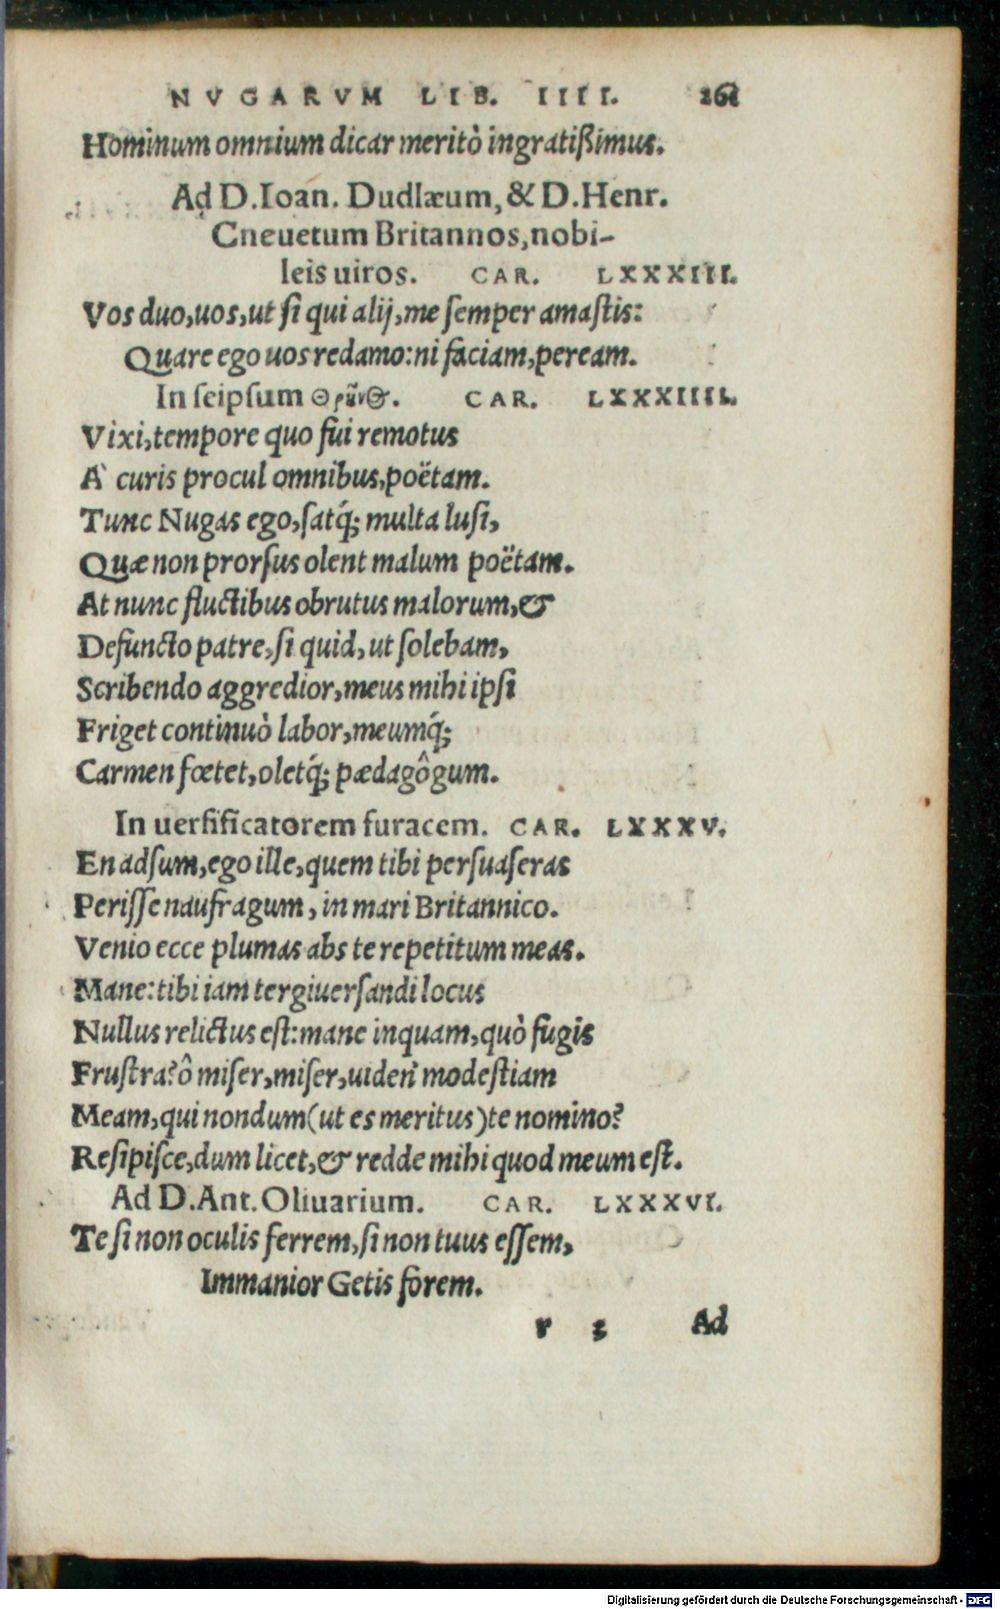 NVGARVM LIB. IIII. 261
Hominum omnium dicar meritò ingratißimus.
Ad D. Ioan. Dudlæum, & D. Henr.
Cneuetum Britannos, nobi-
leis uiros. CAR. LXXXIII.
Vos duo, uos, ut si qui alij, me semper amastis:
Quare ego uos redamo: ni faciam, peream.
In seipsum CAR. LXXXIIII.
Vixi, tempore quo fui remotus
A` curis procul omnibus, poëtam.
Tunc Nugas ego, satq́; multa lusi,
Quæ non prorsus olent malum poëtam.
At nunc fluctibus obrutus malorum, &
Defuncto patre, si quid, ut solebam,
Scribendo aggredior, meus mihi ipsi
Friget continuò labor, meumq́;
Carmen fœtet, oletq́; pædagôgum.
In uersificatorem furacem. CAR. LXXXV.
En adsum, ego ille, quem tibi persuaseras
Perisse naufragum, in mari Britannico.
Venio ecce plumas abs te repetitum meas.
Mane: tibi iam tergiuersandi locus
Nullus relictus est: mane inquam, quò fugis
Frustra? ô miser, miser, uiden' modestiam
Meam, qui nondum (ut es meritus) te nomino?
Resipisce, dum licet, & redde mihi quod meum est.
Ad D. Ant. Oliuarium. CAR. LXXXVI.
Te si non oculis ferrem, si non tuus essem,
Immanior Getis forem.
r 3 Ad
Digitalisierung gefördert durch die Deutsche Forschungsgemeinschaft - DFG